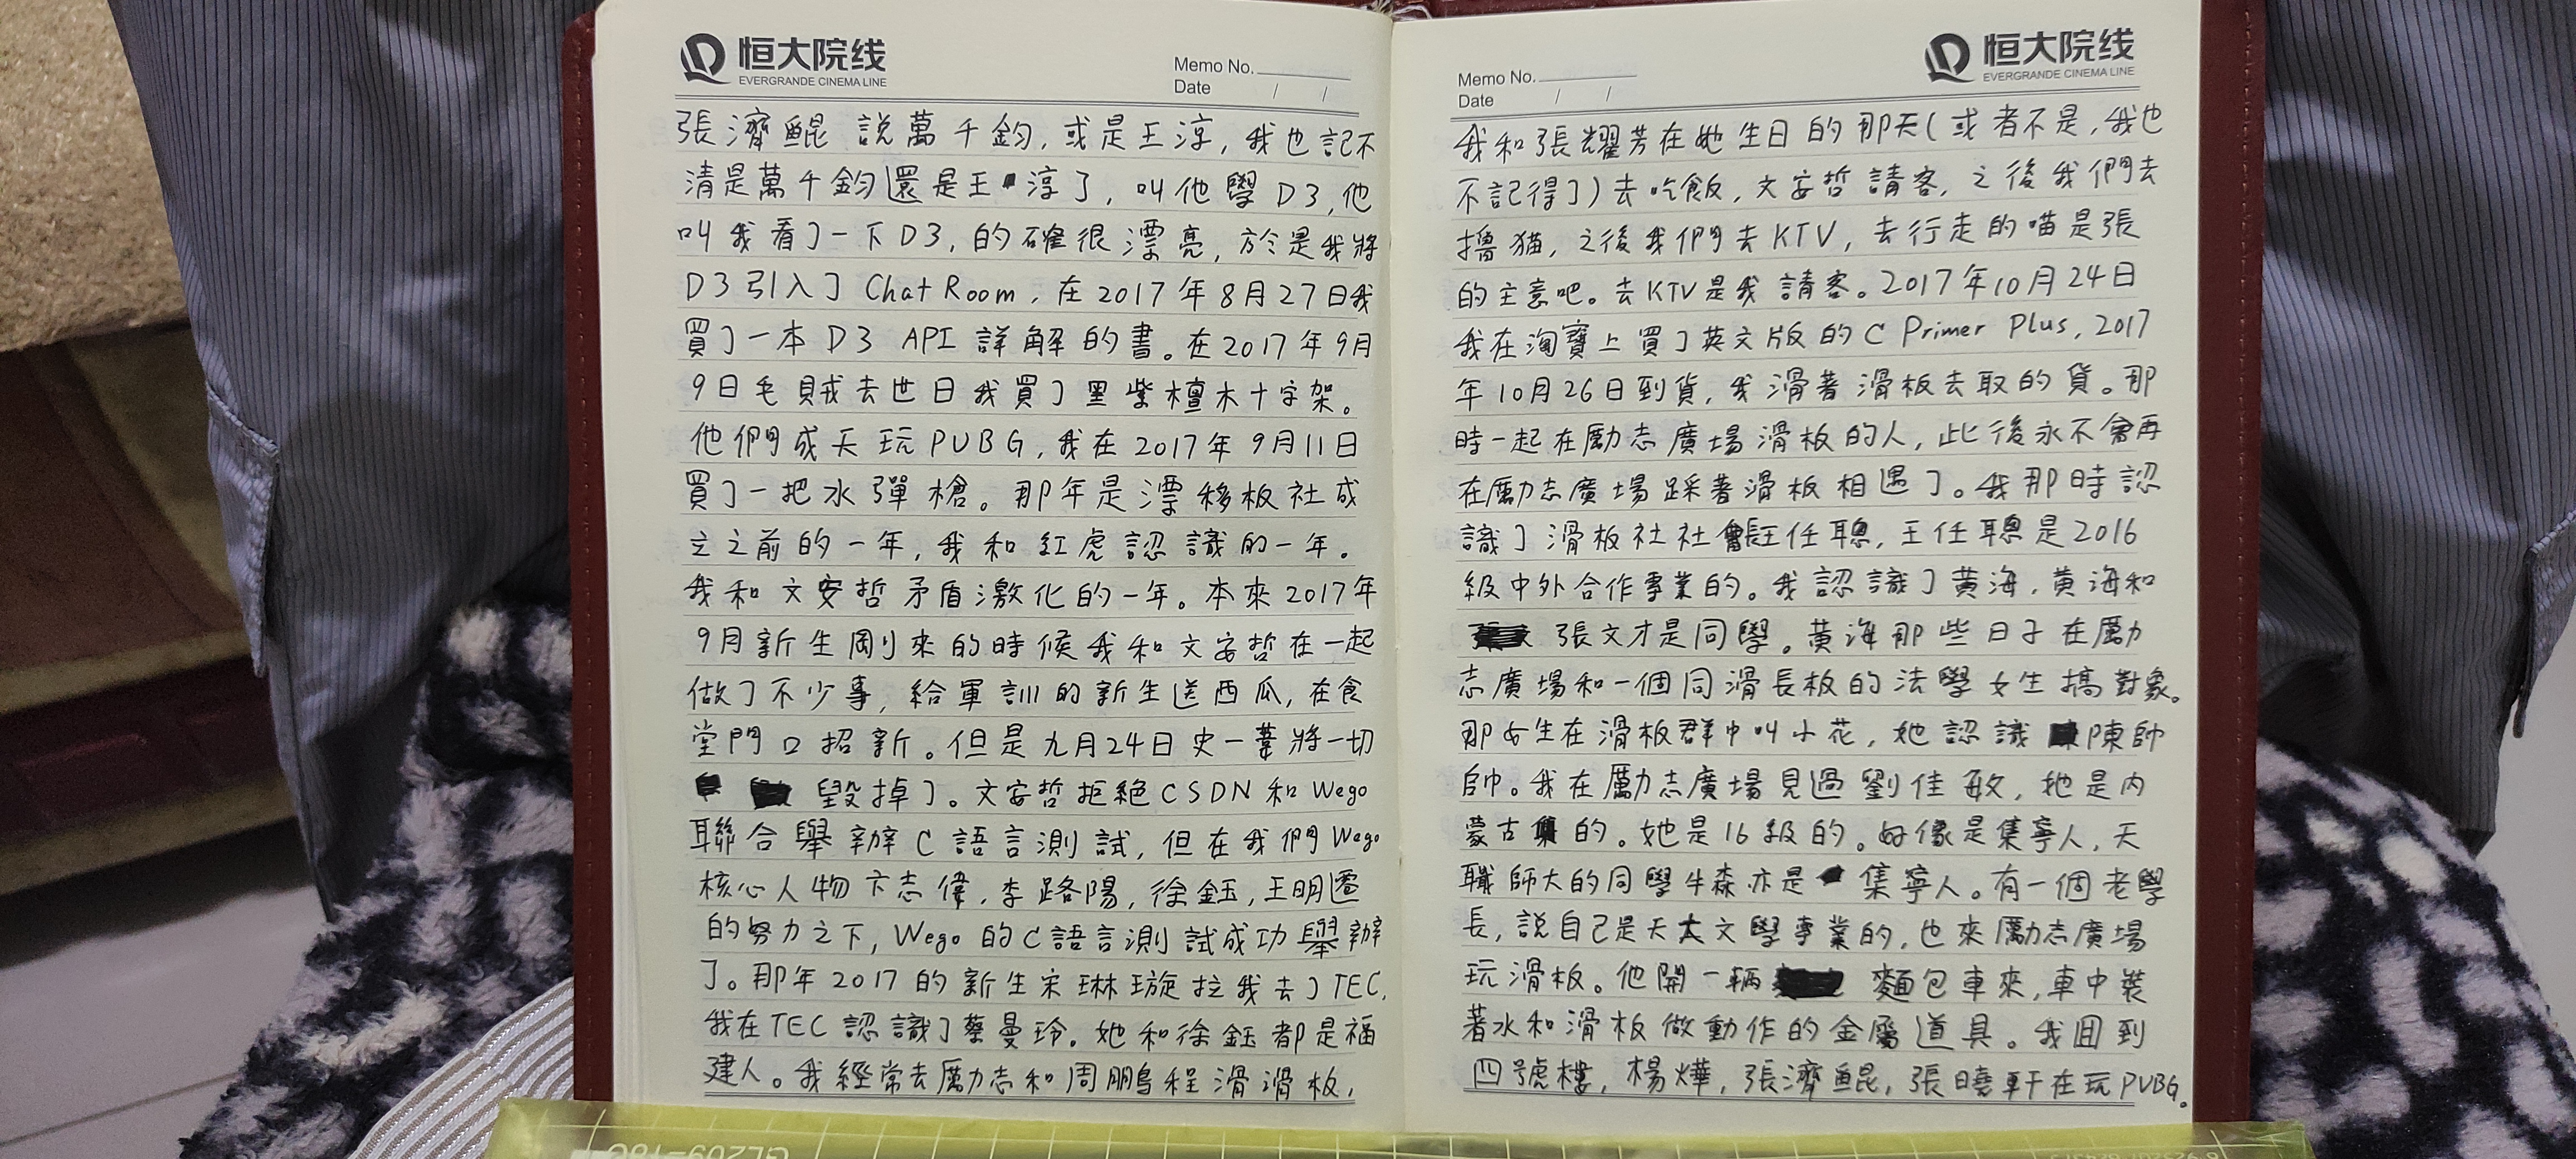 恒大院线
EVERGRANDE CINEMA LINE
Memo No.
Date / /
張濟鯤 説萬千鈞,或是王淳,我也記不
清是萬千鈞還是王淳了,叫他學D3,他
叫我看了一下D3,的確很漂亮,於是我將
D3引入了 Chat Room,在2017年8月27日我
買了一本 D3 API 詳解的書。在2017年9月
9日毛賊去世日我買了黑紫檀木十字架。
他們成天玩PUBG,我在2017年9月11日
買了一把水彈槍。那年是漂移板社成
立之前的一年,我和紅虎認識的一年。
我和文安哲矛盾激化的一年。本來2017年
9月新生剛來的時候我和文安哲在一起
做了不少事,給軍訓的新生送西瓜,在食
堂門口招新。但是九月24日史一葦將一切
毀掉了。文安哲拒絕CSDN和Wego
聯合舉辦C語言測試,但在我們Wego
核心人物卞志偉,李路陽,徐鈺,王明遷
的努力之下,Wego的C語言測試成功舉辦
了。那年2017的新生宋琳璇拉我去了TEC,
我在TEC認識了蔡曼玲。她和徐鈺都是福
建人。我經常去勵志和周鵬程滑滑板,
恒大院线
EVERGRANDE CINEMA LINE
Memo No.
Date / /
我和張耀芳在她生日的那天(或者不是,我也
不記得了)去吃飯,文安哲請客,之後我們去
擼猫,之後我們去KTV,去行走的喵是張
的主意吧。去KTV是我請客。2017年10月24日
我在淘寶上買了英文版的C Primer Plus,2017
年10月26日到貨,我滑著滑板去取的貨。那
時一起在勵志廣場滑板的人,此後永不會再
在勵志廣場踩著滑板相遇了。我那時認
識了滑板社社長王任聰,王任聰是2016
級中外合作專業的。我認識了黄海,黄海和
張文才是同學。黄海那些日子在勵
志廣場和一個同滑長板的法學女生搞對象。
那女生在滑板群中叫小花,她認識陳帥
帥。我在勵志廣場見過劉佳敏,她是内
蒙古的。她是16級的。好像是集寧人,天
職師大的同學牛森亦是集寧人。有一個老學
長,説自己是天大文學專業的,也來勵志廣場
玩滑板。他開一輛麵包車來,車中裝
著水和滑板做動作的金屬道具。我回到
四號樓,楊燁,張濟鯤,張曉軒在玩PUBG。